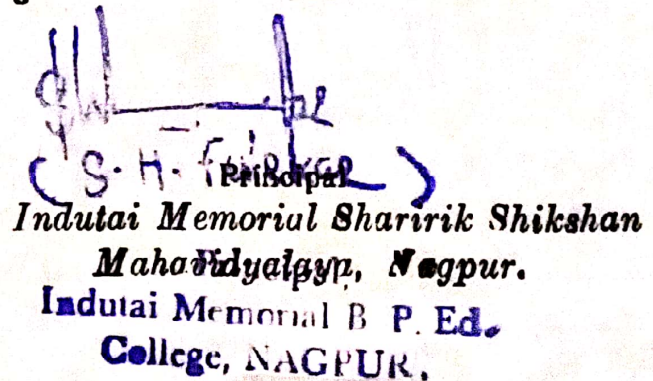 ( S. H. )
Principal
Indutai Memorial Sharirik Shikshan
Mahavidyalaya, Nagpur.
Principal
Indutai Memorial B. P. Ed.
College, NAGPUR.